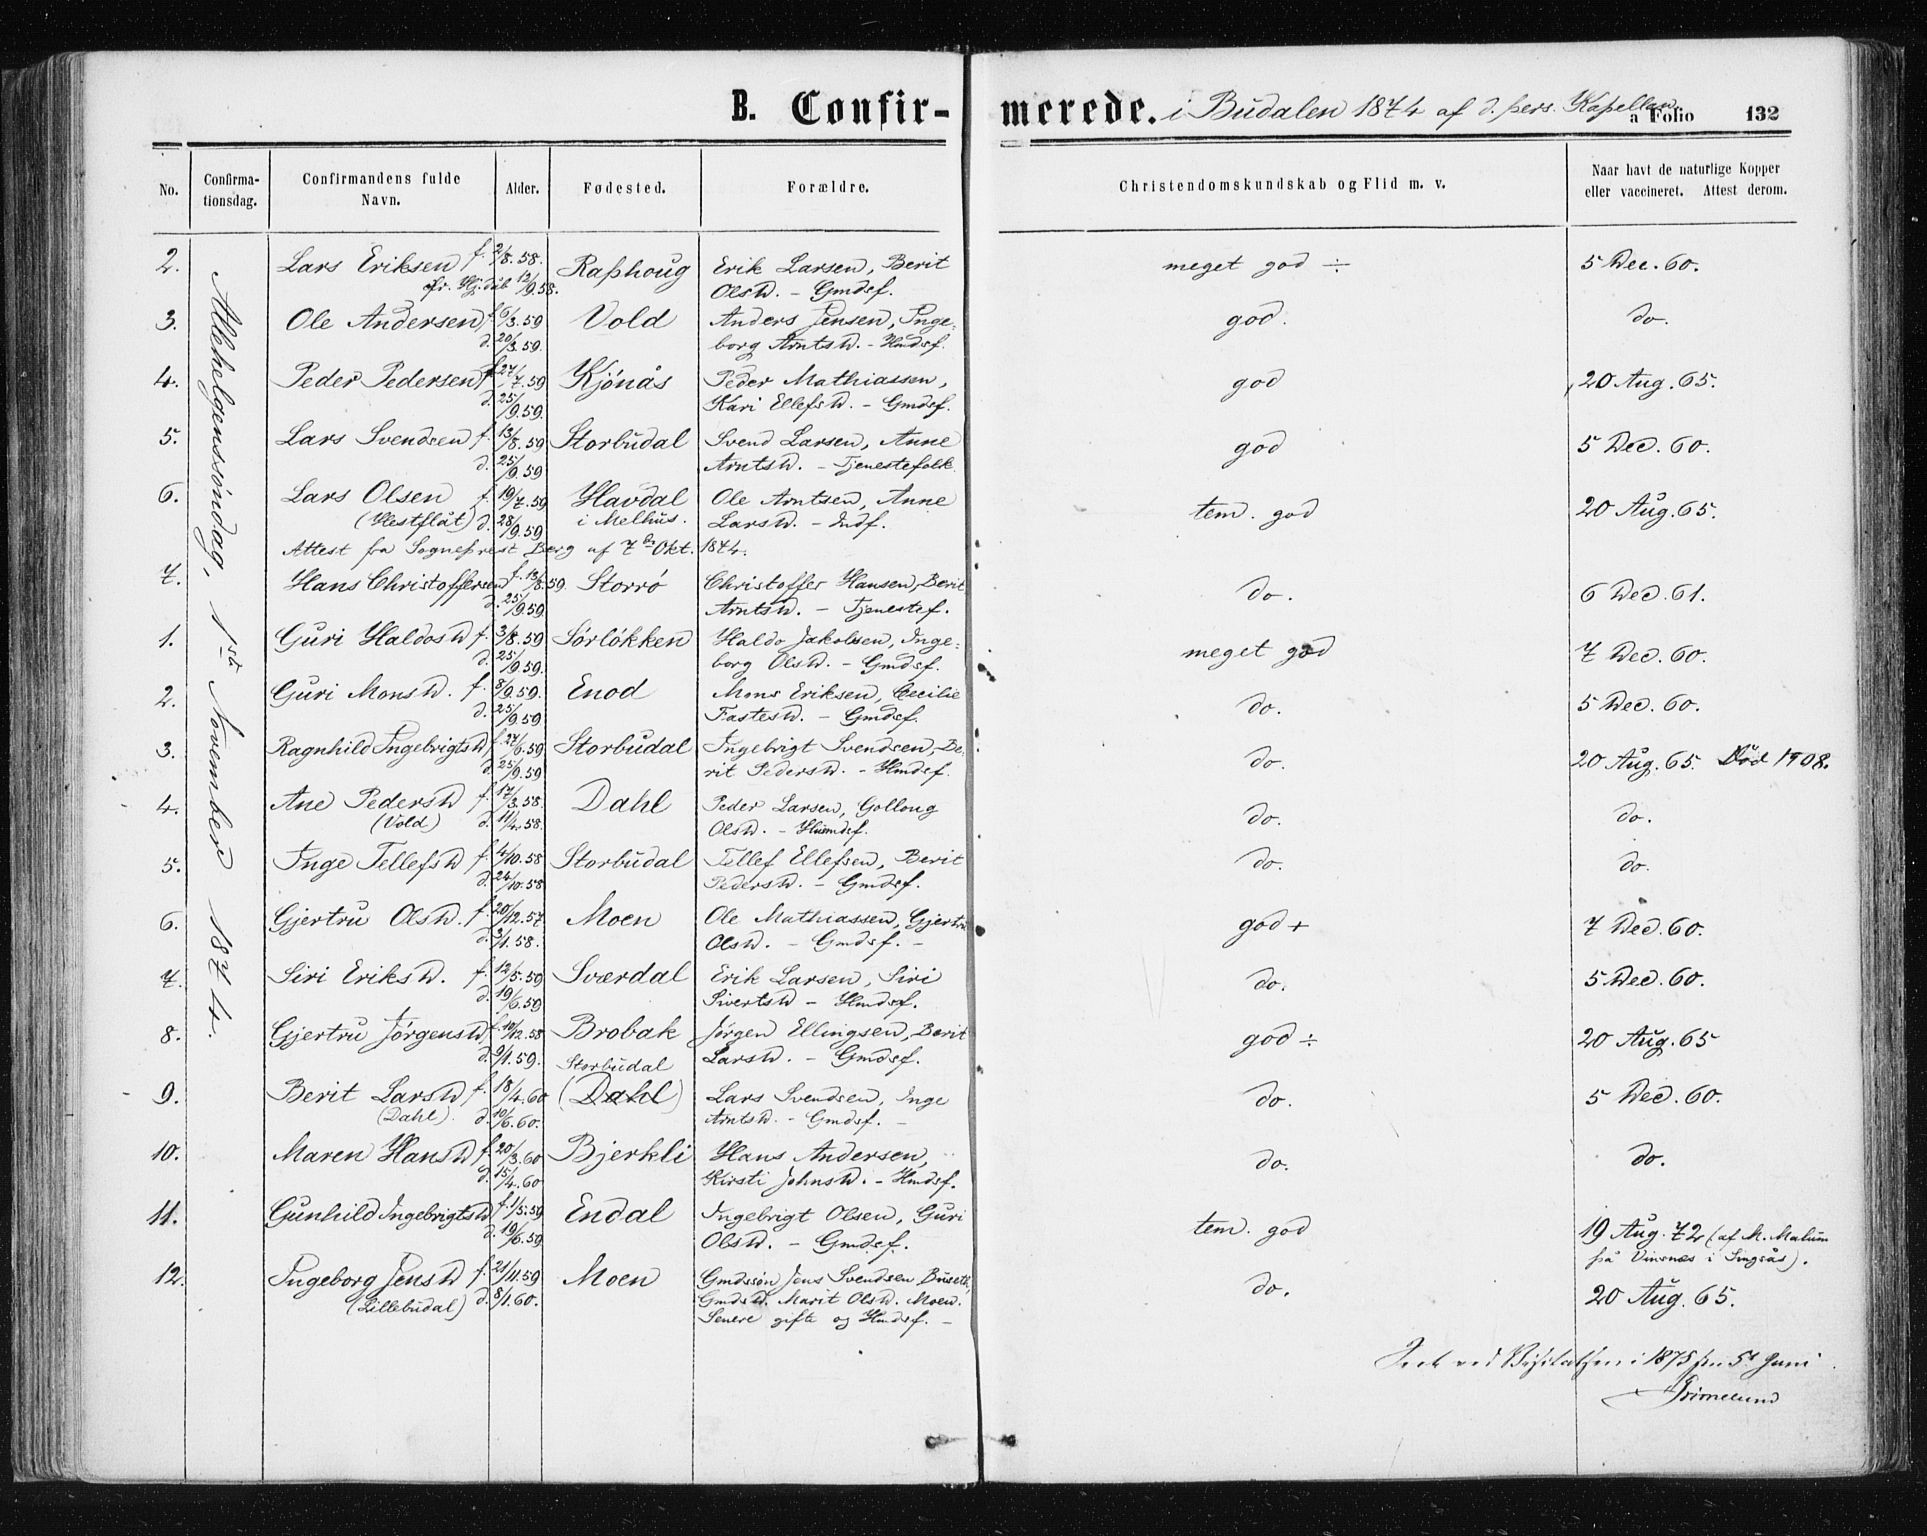 B. Confir- merede. i Budalen 1874 af d. pers. Kapellan.
a Folio 132
No. Confirma-tionsdag. Confirmandens fulde Navn. Alder. Fødested. Forældre. Christendomskundskab og Flid m. v. Naar havt de naturlige Kopper eller vaccineret. Attest derom.
Allehelgenssöndag, 1ste November 1874.
2. Lars Eriksen f. 2/8.58. Raphoug Erik Larsen, Berit meget god ÷ 5 Dec. 60.
fr. Hj.dåb 12/9.58. OlsD. – Gmdsf.
3. Ole Andersen f. 6/3.59 Vold Anders Jensen, Inge- god. do.
d. 20/3.59. borg ArntsD. – Hmdsf.
4. Peder Pedersen f. 27/7.59 Kjönås Peder Mathiassen, god 20 Aug. 65.
d. 25/9.59. Kari EllefsD. – Gmdsf.
5. Lars Svendsen f. 13/8.59 Storbudal Svend Larsen, Anne god 5 Dec. 60.
d. 25/9.59 ArntsD. – Tjenestefolk.
6. Lars Olsen f. 19/7.59 Havdal Ole Arntsen, Anne tem. god 20 Aug. 65.
(Hestflåt) d. 28/9.59 i Melhus. LarsD. – Indf.
Attest fra Sogneprest Berg af 7de Okt. 1874.
7. Hans Christoffersen f. 13/8.59 Storrö Christoffer Hansen, Berit do. 6 Dec. 61.
d. 25/9.59 ArntsD. – Tjenestef.
1. Guri HaldosD f. 3/8.59 Sörlökken Haldo Jakobsen, Inge- meget god 7 Dec. 60.
d. 25/9.59. borg OlsD. – Gmdsf.
2. Guri MonsD. f. 8/9.59. Enod Mons Eriksen, Cecilie do. 5 Dec. 60.
d. 25/9.59 FastesD. – Gmdsf.
3. Ragnhild IngebrigtsD f. 27/6.59 Storbudal Ingebrigt Svendsen, Be- do. 20 Aug. 65. Död 1908.
d. 25/9.59 rit PedersD. – Hmdsf.
4. Ane PedersD f. 17/3.58. Dahl Peder Larsen, Gollong do. do.
(Vold) d. 11/4.58. OlsD. – Husmdsf.
5. Inge TellefsD f. 4/10.58 Storbudal Tellef Ellefsen, Berit do. do.
d. 24/10.58 PedersD. – Gmdsf.
6. Gjertru OlsD. f. 20/12.57 Moen Ole Mathiassen, Gjertru god + 7 Dec. 60.
d. 3/1.58. OlsD. – Gmdsf. –
7. Siri EriksD. f. 12/5.59 Sværdal Erik Larsen, Siri do. 5 Dec. 60.
d. 19/6.59 SivertsD – Hmdsf.
8. Gjertru JörgensD f. 10/12.58 Brobak Jörgen Ellingsen, Berit god ÷ 20 Aug. 65
d. 9/1.59. LarsD. – Gmdsf.
Storbudal
9. Berit LarsD f. 18/4.60 (Dahl) Lars Svendsen, Inge do. 5 Dec. 60.
(Dahl) d. 10/6.60. ArntsD. – Gmdsf. –
10. Maren HansD f. 20/3.60 Bjerkli Hans Andersen, do. do.
d. 15/4.60 Kirsti JohnsD. – Hmdsf.
11. Gunhild IngebrigtsD f. 1/5.59 Endal Ingebrigt Olsen, Guri tem. god 19 Aug. 72 (af M. Malum
d. 19/6.59 OlsD. – Gmdsf. på Vinsnes i Singsås).
12. Ingeborg JensD f. 21/11.59 Moen Gmdssön Jens Svendsen Buseth, do. 20 Aug. 65.
(Lillebudal) d. 8/1.60. GmdsD. Marit OlsD. Moen.
Senere gifte og Hmdsf. –
Seet ved Visitatsen i 1875 den 5te Juni
Grimelund